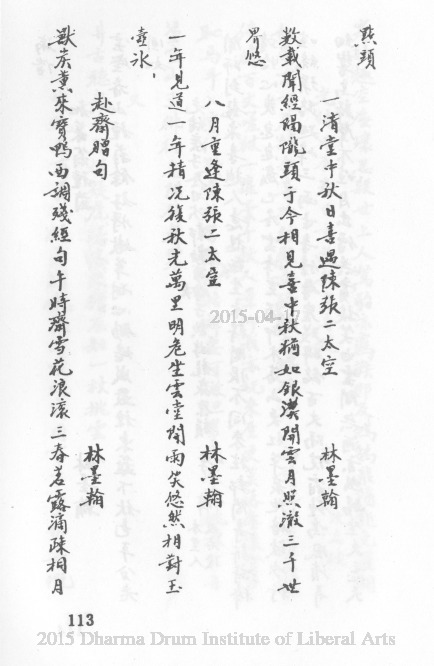 點頭
一清堂中秋日喜遇陳張二太空 林墨翰
數載聞經隔隴頭于今相見喜中秋猶如銀漢開雲月照澈三千世
界悠
八月重逢陳張二太空 林墨翰
一年見道一年精况復秋光萬里明危坐雲堂閒雨笑悠然相對玉
壺冰
赴齋贈句 林墨翰
獸炭薰來寶鴨西調殘經句午時齋雪花浪滾三春茗露滴疎桐月
113
2015-04-17
2015 Dharma Drum Institute of Liberal Arts